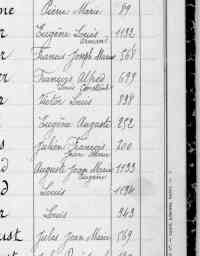 ne Pierre Marie 89
r Eugène Louis 1132
Armand
r Francis Joseph Marie 568
er François Alfred 699
Louis Constant
r Victor Louis 838
Eugène Auguste 252
s Julien François 200
Jean Marie
d Auguste Jean Marie 1133
Eugène
d Louis 1194
r Louis 343
ust Jules Jean Marie 569